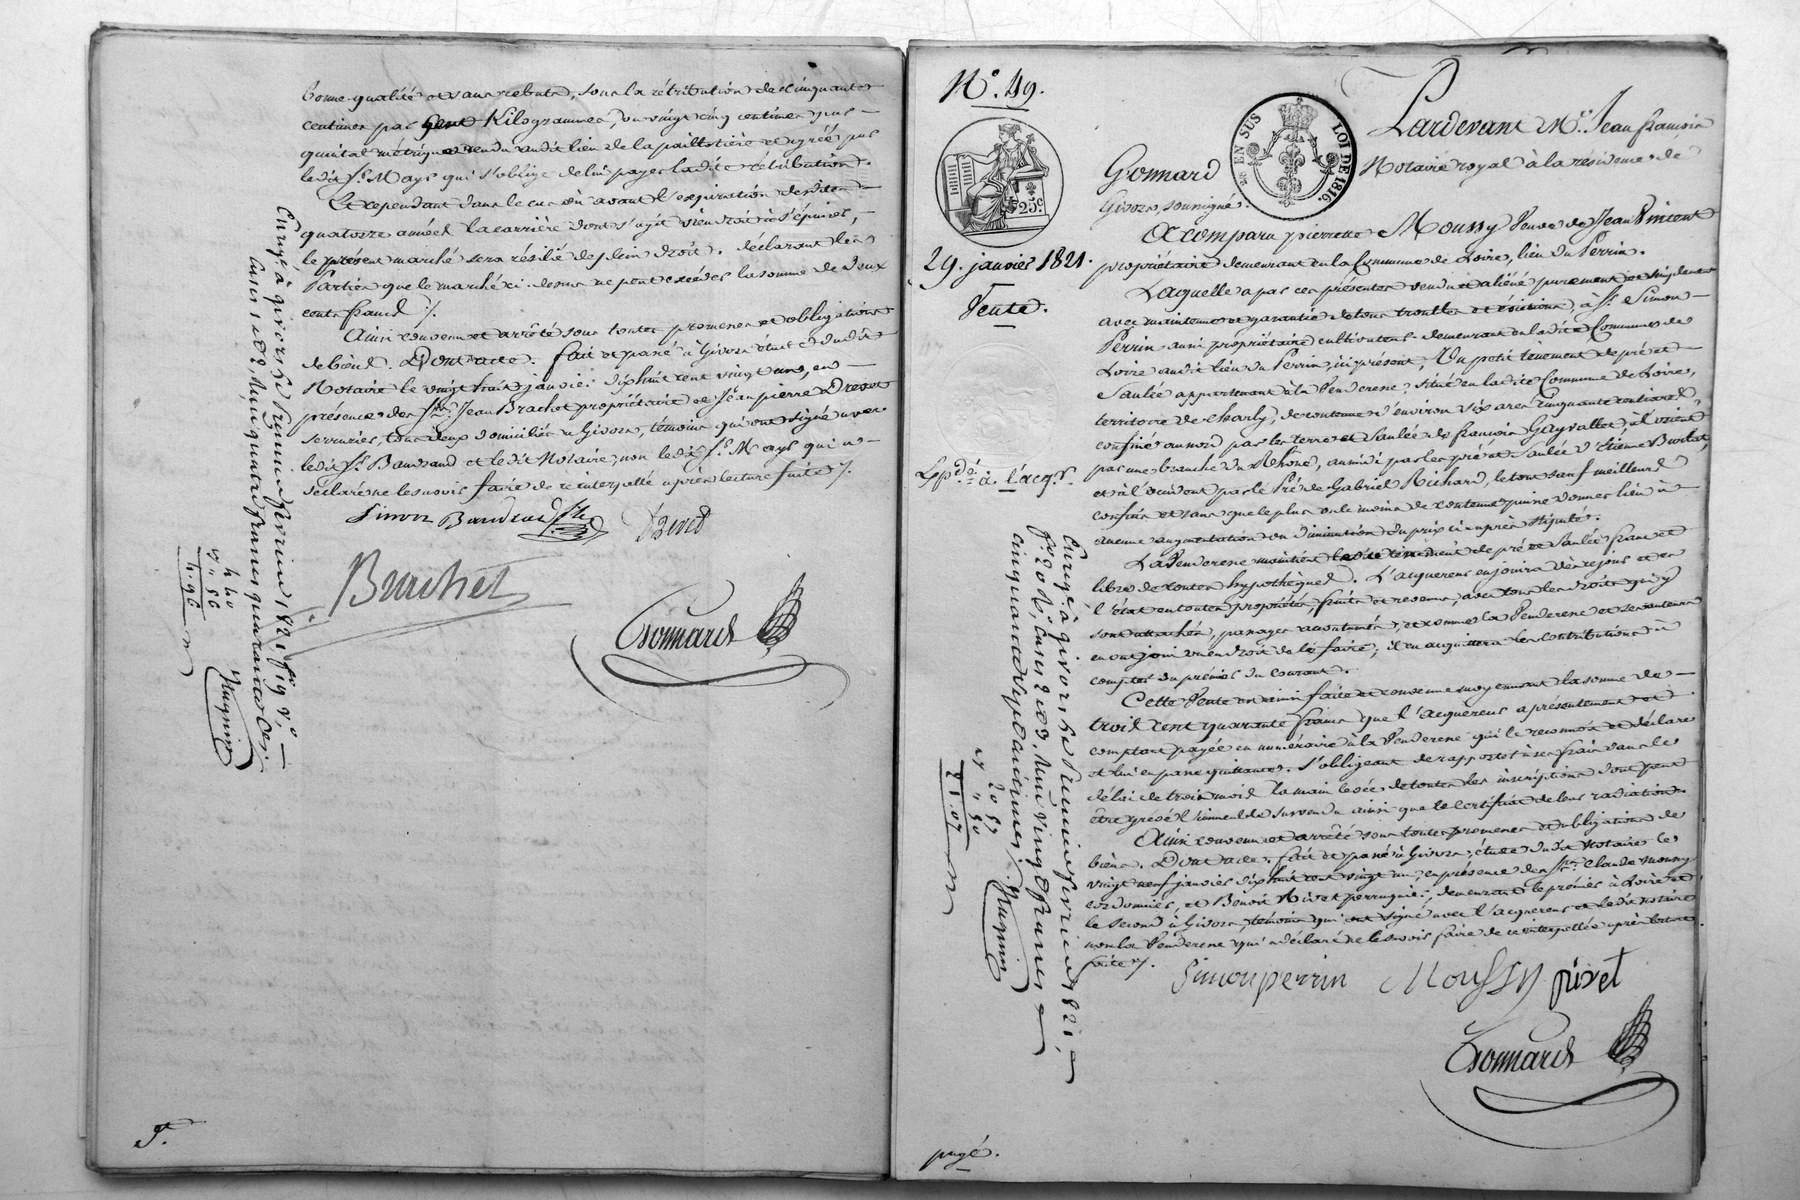 bonne qualité et sans rebuts, sous la rétribution de cinquante
centimes par cent Kilogrammes, ou vingt cinq centimes par
quintal métrique rendu audit lieu de la paillotière et agréé par
ledit Sr. Mays qui s'oblige de lui payer ladite rétribution.
Et cependant dans le cas où avant l'expiration desdites
quatorze années la carrière dont s'agit viendroit à s'épuiser,
le présent marché sera résilié de plein droit. déclarant les
Parties que le marché ci-dessus ne peut excéder la somme de deux
cents francs /.
Ainsi convenu et arrêté sous toutes promesses et obligations
de biens. Dont acte. fait et passé à Givors étude dudit
Notaire le vingt huit janvier dix huit cent vingt un, en
présence des Srs. Jean Brachet propriétaire et Jean pierre Drevet
serrurier, tous deux domiciliés à Givors, témoins qui ont signé avec
ledit Sr. Baudrand et ledit Notaire, non ledit Sr. Mays qui a
déclaré ne le savoir faire de ce interpellé après lecture faite /.
Simon Baudrand fils Drevet
Brachet
Gonnard
Enregé. à givors le Premier février 1821 fo. 19 Vo.
Cases 1 et 2, reçu quatre francs quarante Ces.
4 40
" 56
4. 96
P.
No. 49.
EN SUS LOI DE 1816.
25c.
Pardevant Me. Jean françois
Gonnard Notaire royal à la résidence de
Givors, soussigné.
29. janvier 1821.
Vente.
A comparu pierrette Moussy Veuve de Jean Vincent
propriétaire demeurant en la Commune de Loire, lieu du Perrin.
Laquelle a par ces présentes vendu et aliéné purement et simplement
avec maintenue et garantie de tous troubles et évictions, à Sr. Simon
Perrin aussi propriétaire cultivateur demeurant en ladite Commune de
Loire audit lieu du Perrin, ici présent, Un petit tènement de pré et
Saulée appartenant à la Venderesse, situé en ladite Commune de Loire,
territoire de charly, de contenue d'environ six ares cinquante centiares,
confiné au nord par les terre et Saulée de françois Gayvallet, à l'orient
par une branche du Rhône, au midi par les pré et Saulée d'Etienne
et à l'occident par le Pré de Gabriel Richard, le tout sauf meilleurs
confins et sans que le plus ou le moins de contenue puisse donner lieu à
aucune augmentation ou diminution du prix ci-après stipulé.
Expdé. à l'acqr.
La Venderesse maintient ledit tènement de pré et Saulée franc et
libre de toutes hypothèques. L'acquereur en jouira dès ce jour et en
l'état en toutes propriétés, fruits et revenus, avec tous les droits qui y
sont attachés, passages accoutumés, et comme la Venderesse et ses auteurs
en ont joui ou en droit de le faire; il en acquittera les contributions à
compter du premier du courant.
Cette Vente est ainsi faite et convenue moyennant la somme de
trois cent quarante francs que l'acquereur a présentement et
comptant payée en numéraire à la Venderesse qui le reconnoit et déclare
et lui en passe quittance, s'obligeant de rapporter à ses frais dans le
délai de trois mois la main levée de toutes les inscriptions dont peut
être grévé l'immeuble survendu ainsi que le certificat de leur radiation.
Ainsi convenu et arrêté sous toutes promesses et obligations de
biens. Dont acte. fait et passé à Givors, étude dudit Notaire le
vingt neuf janvier dix huit cent vingt un, en présence des Srs. Claude Moussy
cordonnier, et Benoit Rivet perruquier, demeurant le premier à Loire et
le second à Givors, témoins qui ont signé avec l'acquereur et ledit Notaire
non la Venderesse qui a déclaré ne le savoir faire de ce interpellée après lecture
faite /.
Simon perrin Moussy rivet
Gonnard
Enregé. à givors le Premier février 1821,
fo. 20 Ro. Cases 2 et 3. reçu Vingt francs
cinquante sept centimes.
20 57
" 50
21. 07
payé.